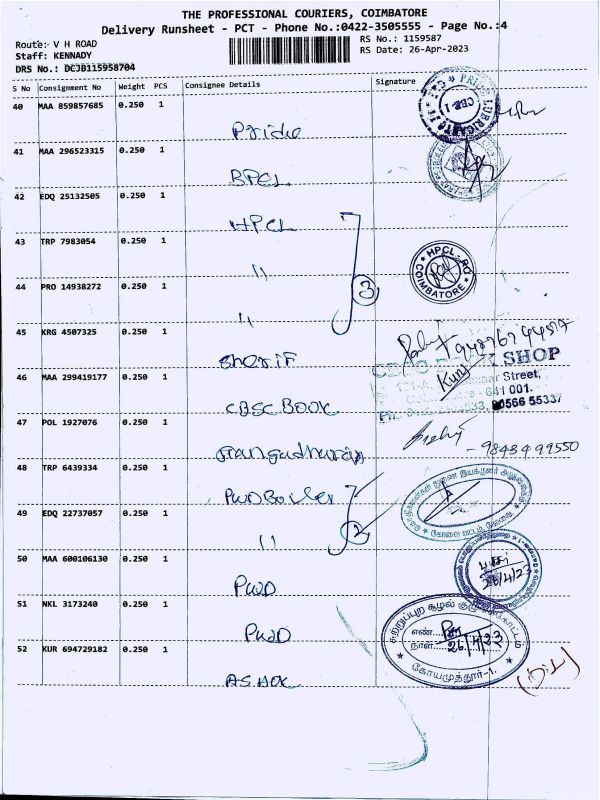 THE PROFESSIONAL COURIERS, COIMBATORE
Delivery Runsheet - PCT - Phone No.:0422-3505555 - Page No.:4
Route: V H ROAD
RS No.: 1159587
Staff: KENNADY
RS Date: 26-Apr-2023
DRS No.: DCJB115958704
S No Consignment No Weight PCS Consignee Details Signature
40 MAA 859857685 0.250 1
Pride
41 MAA 296523315 0.250 1
BPCL
42 EDQ 25132505 0.250 1
HPCL
43 TRP 7983054 0.250 1
"
HPCL-RO COIMBATORE
44 PRO 14938272 0.250 1
3
"
45 KRG 4507325 0.250 1
Sherif
SHOP
Street,
641 001.
46 MAA 299419177 0.250 1
Kunj
CBSC BOOK
90566 55337
47 POL 1927076 0.250 1
Rangadhuran
- 9843499550
48 TRP 6439334 0.250 1
PWD Boiler
49 EDQ 22737057 0.250 1
2
"
50 MAA 600106130 0.250 1
26/4/23
PWD
51 NKL 3173240 0.250 1
PWD
எண்.
நாள் 26/4/23
கோயமுத்தூர்-1.
52 KUR 694729182 0.250 1
ASHOK